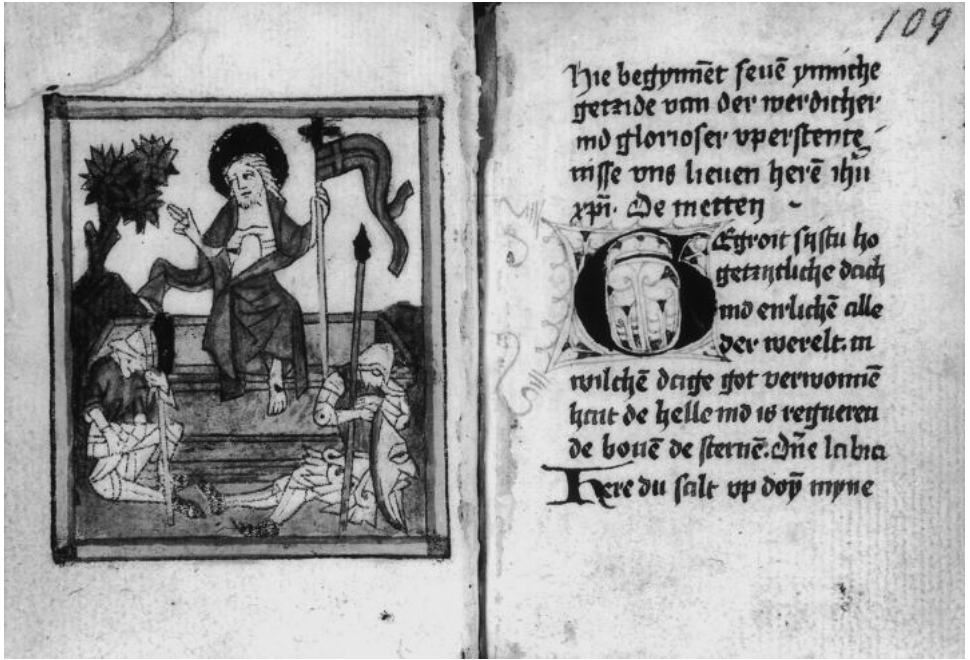 109
hie begynnēt seuē ynniche
getzide van der werdicher
ind glorioser vperstente
nisse vns lieuen herē ihū
xp̄i. De metten
Gegroit sistu ho
getzitliche dach
ind erlichē alle
der werelt. in
wilchē dage got verwonnē
hait de helle ind is regneren
de bouē de sternē. Dn̄e labia
Here du salt vp doyn myne